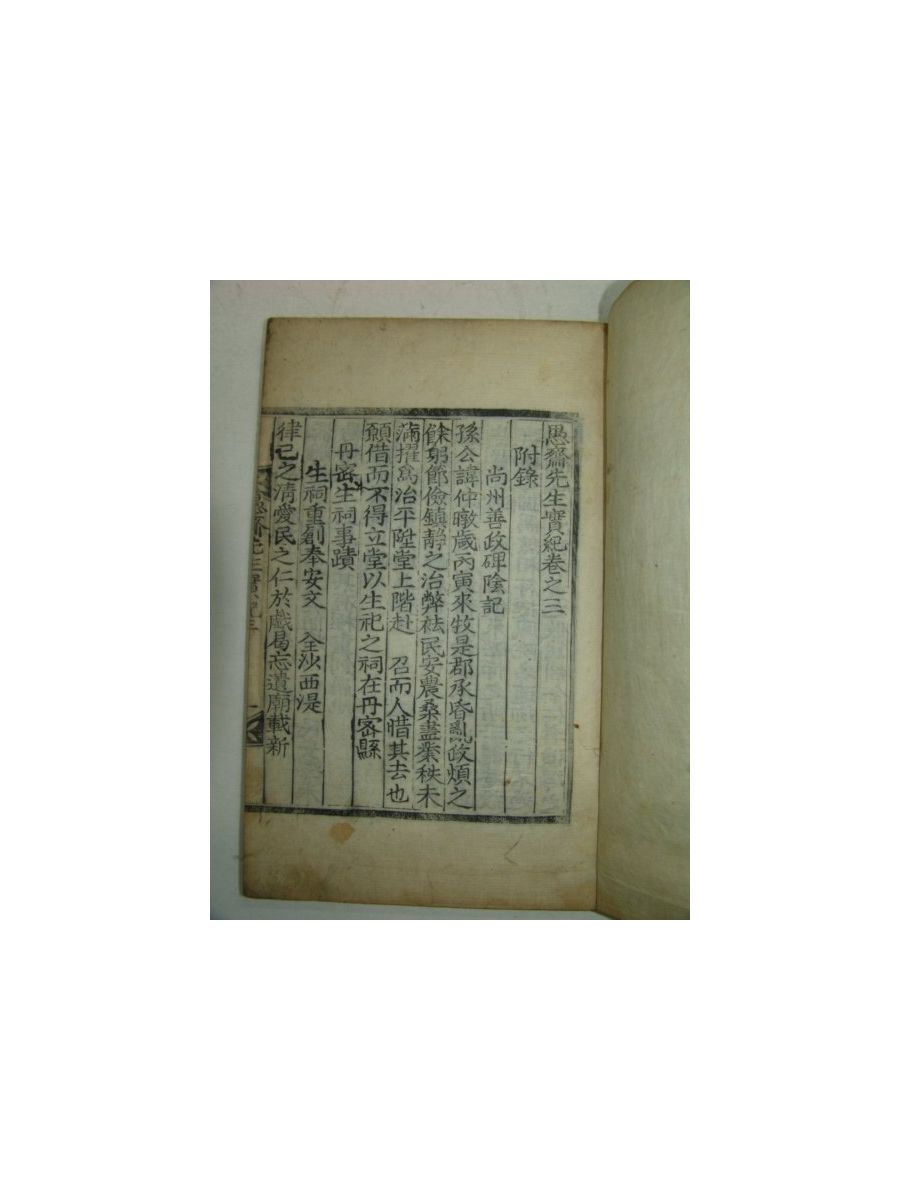 愚齋先生實紀卷之三
附錄
尙州善政碑陰記
孫公諱仲暾歲丙寅來牧是郡承昏亂政煩之
餘躬節儉鎭靜之治弊祛民安農桑盡業秩未
滿擢爲治平陞堂上階赴 召而人惜其去也
願借而不得立堂以生祀之祠在丹密縣
丹密生祠事蹟
生祠重創奉安文 全沙西湜
律己之淸愛民之仁於戱曷忘遺廟載新
愚齋先生實紀三